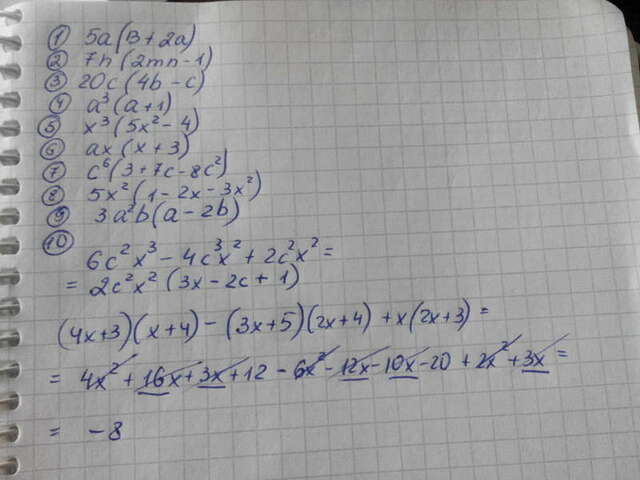 ① 5a(B+2a)
② 7n(2mn-1)
③ 20c(4b-c)
④ a³(a+1)
⑤ x³(5x²-4)
⑥ ax(x+3)
⑦ c⁶(3+7c-8c²)
⑧ 5x²(1-2x-3x²)
⑨ 3a²b(a-2b)
⑩
6c²x³-4c³x²+2c²x²=
=2c²x²(3x-2c+1)
(4x+3)(x+4)-(3x+5)(2x+4)+x(2x+3)=
=4x²+16x+3x+12-6x²-12x-10x-20+2x²+3x=
=-8